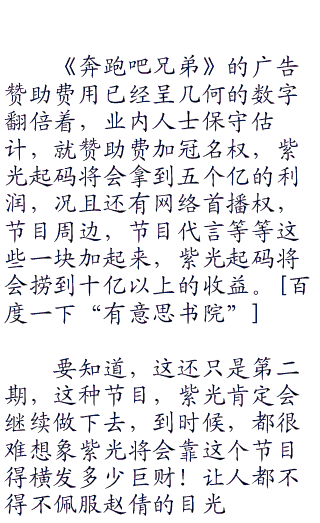 《奔跑吧兄弟》的广告
赞助费用已经呈几何的数字
翻倍着，业内人士保守估
计，就赞助费加冠名权，紫
光起码将会拿到五个亿的利
润，况且还有网络首播权，
节目周边，节目代言等等这
些一块加起来，紫光起码将
会捞到十亿以上的收益。[百
度一下“有意思书院”]
要知道，这还只是第二
期，这种节目，紫光肯定会
继续做下去，到时候，都很
难想象紫光将会靠这个节目
得横发多少巨财！让人都不
得不佩服赵倩的目光